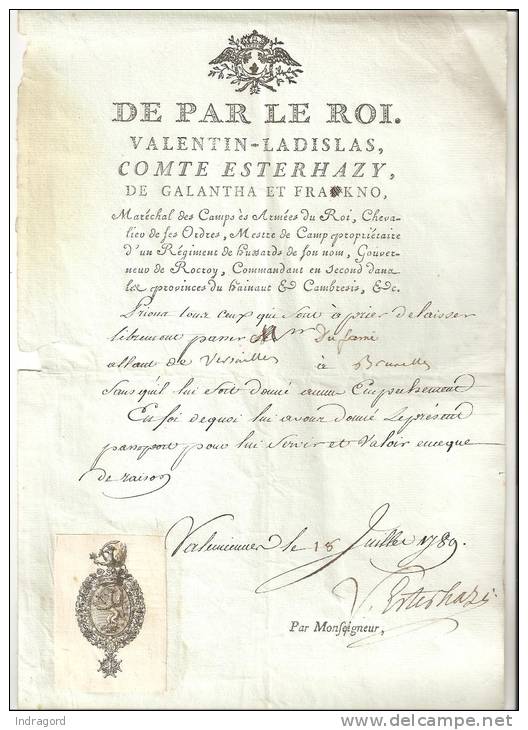 DE PAR LE ROI.
VALENTIN-LADISLAS,
COMTE ESTERHAZY,
DE GALANTHA ET FRAKNO,
Maréchal des Camps ès Armées du Roi, Cheva-
lier de ses Ordres, Mestre de Camp propriétaire
d'un Régiment de hussards de son nom, Gouver-
neur de Rocroy, Commandant en second dans
les provinces du hainaut & Cambresis, &c.
Prions tous ceux qui sont à prier de laisser
librement passer Mr
allant de Versailles à Bruxelles
sans qu'il lui soit donné aucun Empechement
En foi de quoi lui avons donné le présent
passeport pour lui servir et valoir ence que
de raison
Valenciennes le 18 Juillet 1789.
V. Esterhazi
Par Monseigneur,
Indragord
www.delcampe.net